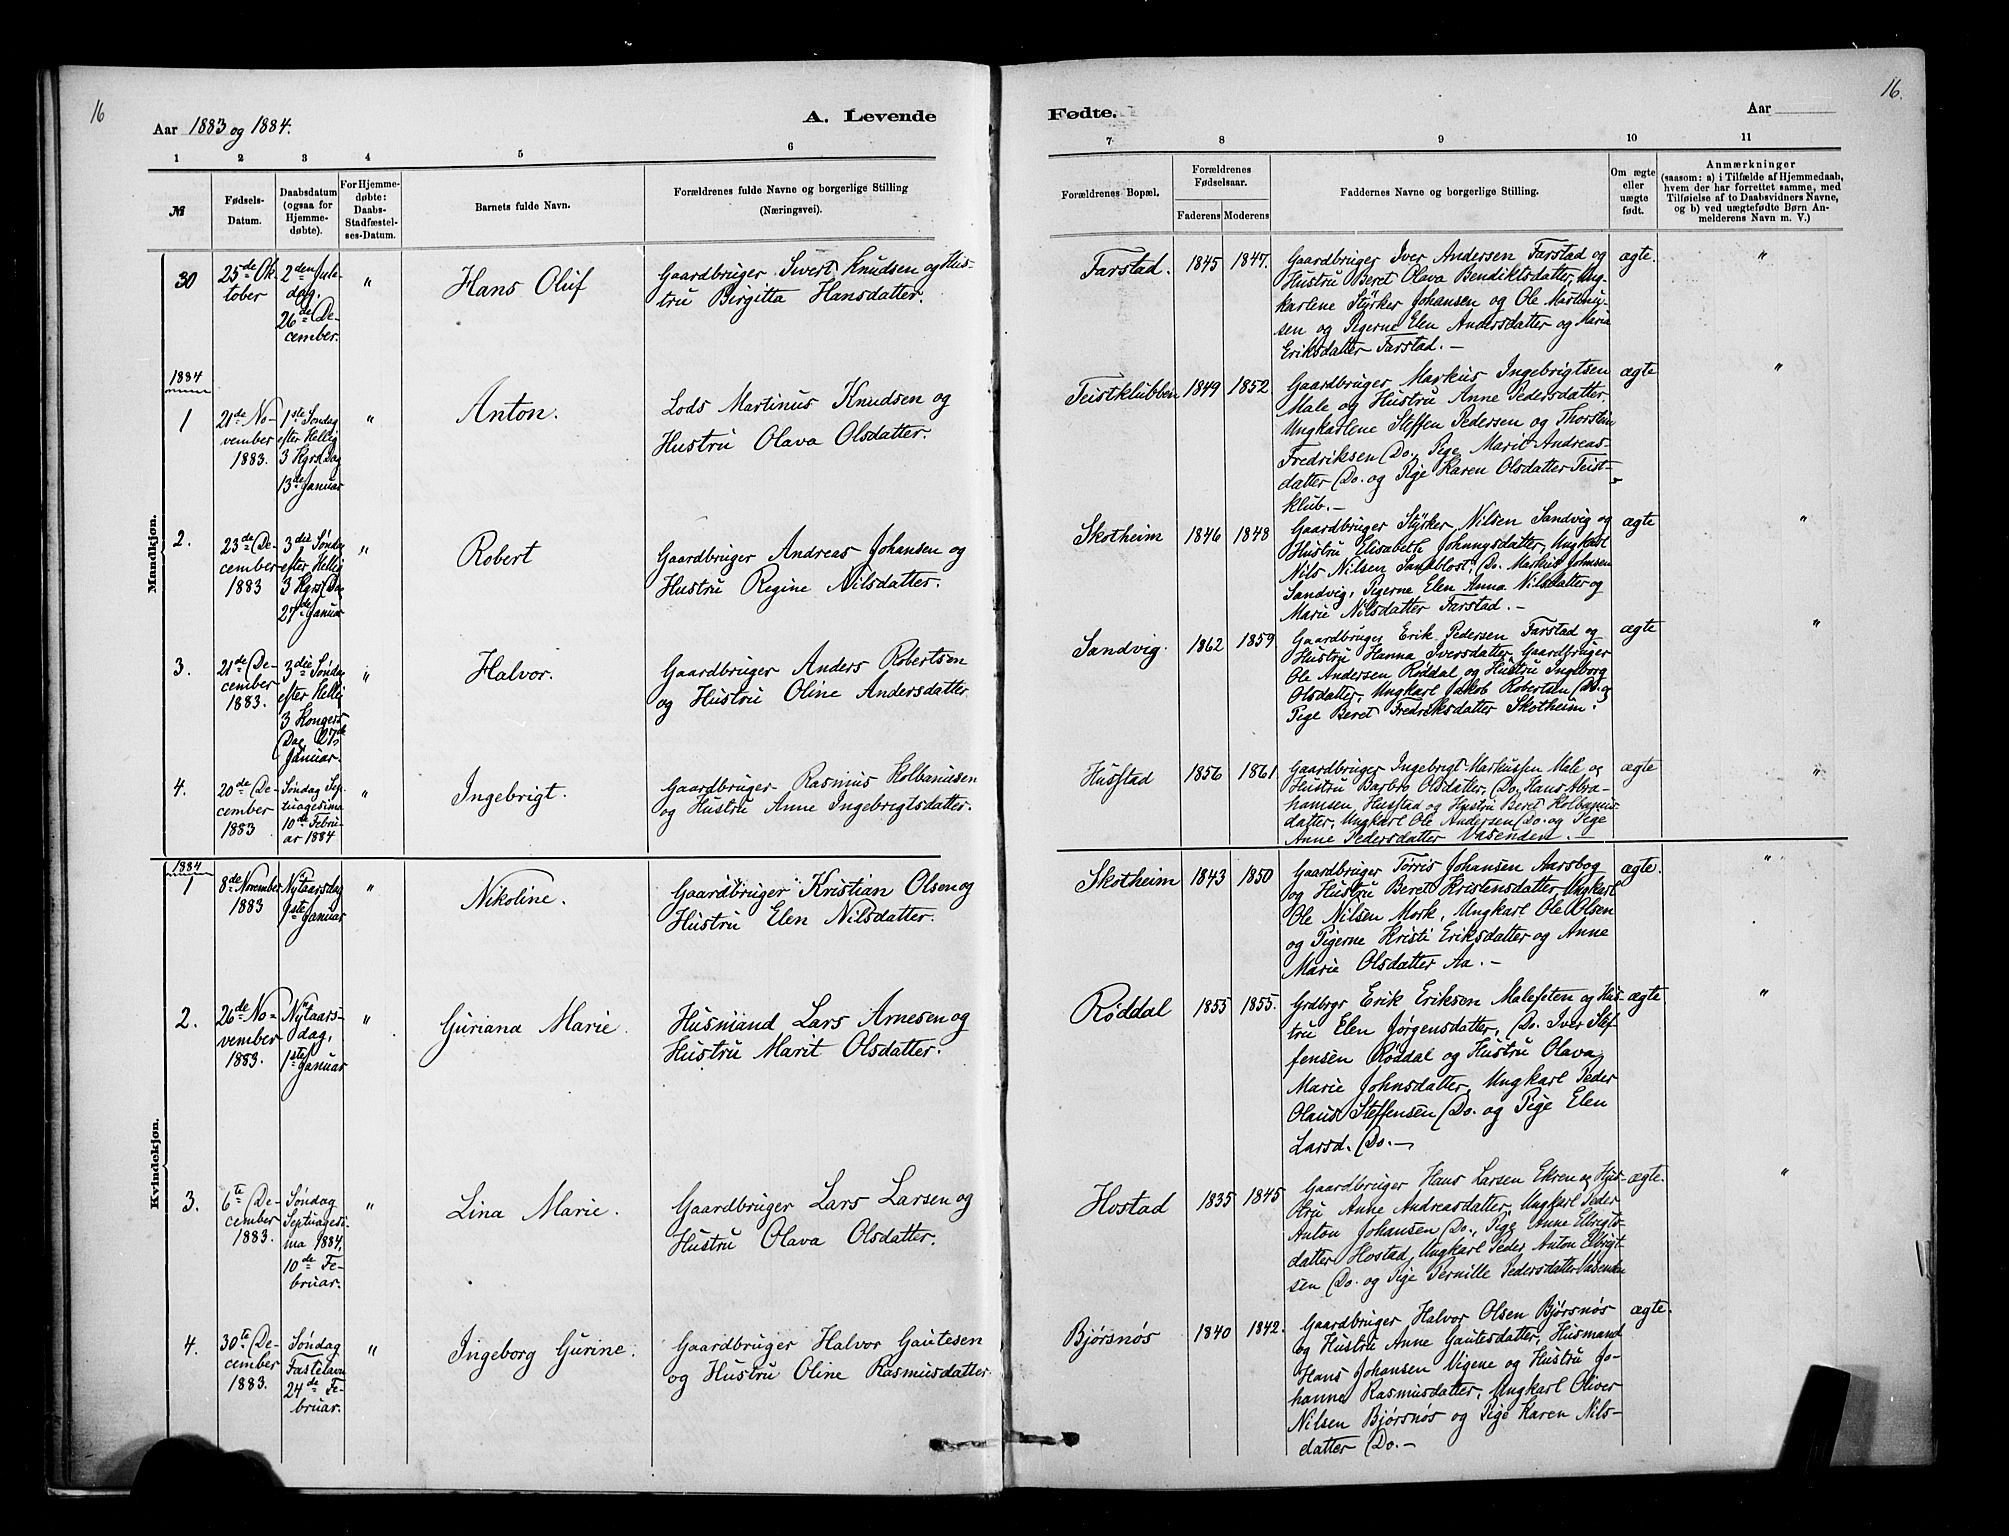 16
Aar 1883 og 1884.
A. Levende
1 2 3 4 5 6
№
Fødsels-Datum.
Daabsdatum (ogsaa for Hjemmedøbte).
For Hjemmedøbte: Daabs-Stadfæstelses-Datum.
Barnets fulde Navn.
Forældrenes fulde Navne og borgerlige Stilling
(Næringsvei).
Mandkjøn.
30
25de Ok-
tober
2den Jule-
dag.
26de De-
cember.
"
Hans Oluf
Gaardbruger Sivert Knudsen og Hus-
tru Birgitta Hansdatter.
1884
1
21de No-
vember
1883.
1ste Søndag
efter Hellig
3 Kgrs Dag
13de Januar
"
Anton.
Lods Martinus Knudsen og
Hustru Olava Olsdatter.
2.
23de De-
cember
1883
3die Søndag
efter Hellig
3 Kgrs Da
27de Januar
"
Robert
Gaardbruger Andreas Johansen og
Hustru Regine Nilsdatter.
3.
21de De-
cember
1883.
3die Søndag
efter Hellig
3 Kongers
Dag 27de
Januar.
"
Halvor.
Gaardbruger Anders Robertsen
og Hustru Oline Andersdatter
4.
20de De-
cember
1883
Søndag Sep-
tuagesima
10de Febru-
ar 1884
"
Ingebrigt.
Gaardbruger Rasmus Kolbanusen
og Hustru Anne Ingebrigtsdatter.
Kvindekjøn.
1884
1
8de November
1883
Nytaarsdag
1ste Januar
"
Nikoline.
Gaardbruger Kristian Olsen og
Hustru Elen Nilsdatter.
2.
26de No-
vember
1883.
Nytaars-
dag,
1ste Januar
"
Guriana Marie.
Husmand Lars Arnesen og
Hustru Marit Olsdatter.
3.
6te De-
cember
1883.
Søndag
Septuagesi-
ma 1884,
10de Fe-
bruar.
"
Lina Marie.
Gaardbruger Lars Larsen og
Hustru Olava Olsdatter.
4.
30te De-
cember
1883.
Søndag
Fastelavn
24de Fe-
bruar.
"
Ingeborg Gurine.
Gaardbruger Halvor Gautesen
og Hustru Oline Rasmusdatter
Fødte.
Aar
16.
7. 8 9 10 11
Forældrenes Bopæl.
Forældrenes Fødselsaar.
Faderens Moderens
Faddernes Navne og borgerlige Stilling.
Om ægte eller uægte født.
Anmærkninger
(saasom: a) i Tilfælde af Hjemmedaab,
hvem der har forrettet samme, med
Tilføielse af to Daabsvidners Navne,
og b) ved uægtefødte Børn An-
melderens Navn m. V.)
Farstad. 1845 1847.
Gaardbruger Iver Andersen Farstad og
Hustru Beret Olava Bendiktsdatter, Ung-
karlene Styrker Johansen og Ole Martinu-
sen og Pigerne Elen Andersdatter og Maria
Eriksdatter Farstad. —
ægte. "
Teistklubben 1849 1852.
Gaardbruger Markus Ingebrigtsen
Male og Hustru Anne Pedersdatter,
Ungkarlene Steffen Pedersen og Thorstein
Fredriksen Do., Pige Marit Andreas-
datter Do. og Pige Karen Olsdatter Teist-
klub. —
ægte "
Skotheim 1846 1848
Gaardbruger Styrker Nilsen Sandvig og
Hustru Elisabeth Johnnysdatter, Ungkarl
Nils Nilsen Sandblost, Do. Markus Johnsen
Sandvig, Pigerne Elen Anna Nilsdatter og
Marie Nilsdatter Farstad. —
ægte "
Sandvig. 1862 1859
Gaardbruger Erik Pedersen Farstad og
Hustru Hanna Iversdatter, Gaardbruger
Ole Andersen Røddal og Hustru Ingeborg
Olsdatter, Ungkarl Jakob Robertsen Do. og
Pige Beret Fredriksdatter Skotheim.
ægte "
Husstad 1856 1861
Gaardbruger Ingebrigt Markussen Male og
Hustru Barbro Olsdatter, Do. Hans Abra-
hamsen, Husstad og Hustru Beret Kolbanus-
datter, Ungkarl Ole Andersen Do. og Pige
Anne Pedersdatter Vasenden. —
ægte "
Skotheim 1843 1850
Gaardbruger Tørris Johansen Aarsbog
og Hustru Beret Kristensdatter, Ungkarl
Ole Nilsen Mork, Ungkarl Ole Olsen
og Pigerne Kristi Eriksdatter og Anne
Marie Olsdatter Aa. —
ægte. "
Røddal 1853 1855.
Grdbrgr Erik Eriksen Malefeten og Hus-
tru Elen Jørgensdatter, Do. Iver Stef
fensen Røddal og Hustru Olava
Marie Johnsdatter, Ungkarl Peder
Olaus Steffensen Do. og Pige Elen
Larsd. Do. —
ægte. "
Hostad 1835 1845
Gaardbruger Hans Larsen Ekren og Hus-
tru Anne Andreasdatter, Ungkarl Peder
Anton Johansen Do., Pige Anne Elbrigts-
datter Hostad, Ungkarl Peder Anton Elbrigt-
sen Do. og Pige Pernille Pedersdatter Vasenden
ægte. "
Bjørsnøs 1840 1842.
Gaardbruger Halvor Olsen Bjørsnøs
og Hustru Anne Gautesdatter, Husmand
Hans Johansen Vigene og Hustru Jo-
hanne Rasmusdatter, Ungkarl Oliver
Nilsen Bjørsnøs og Pige Karen Nils-
datter Do. —
ægte.